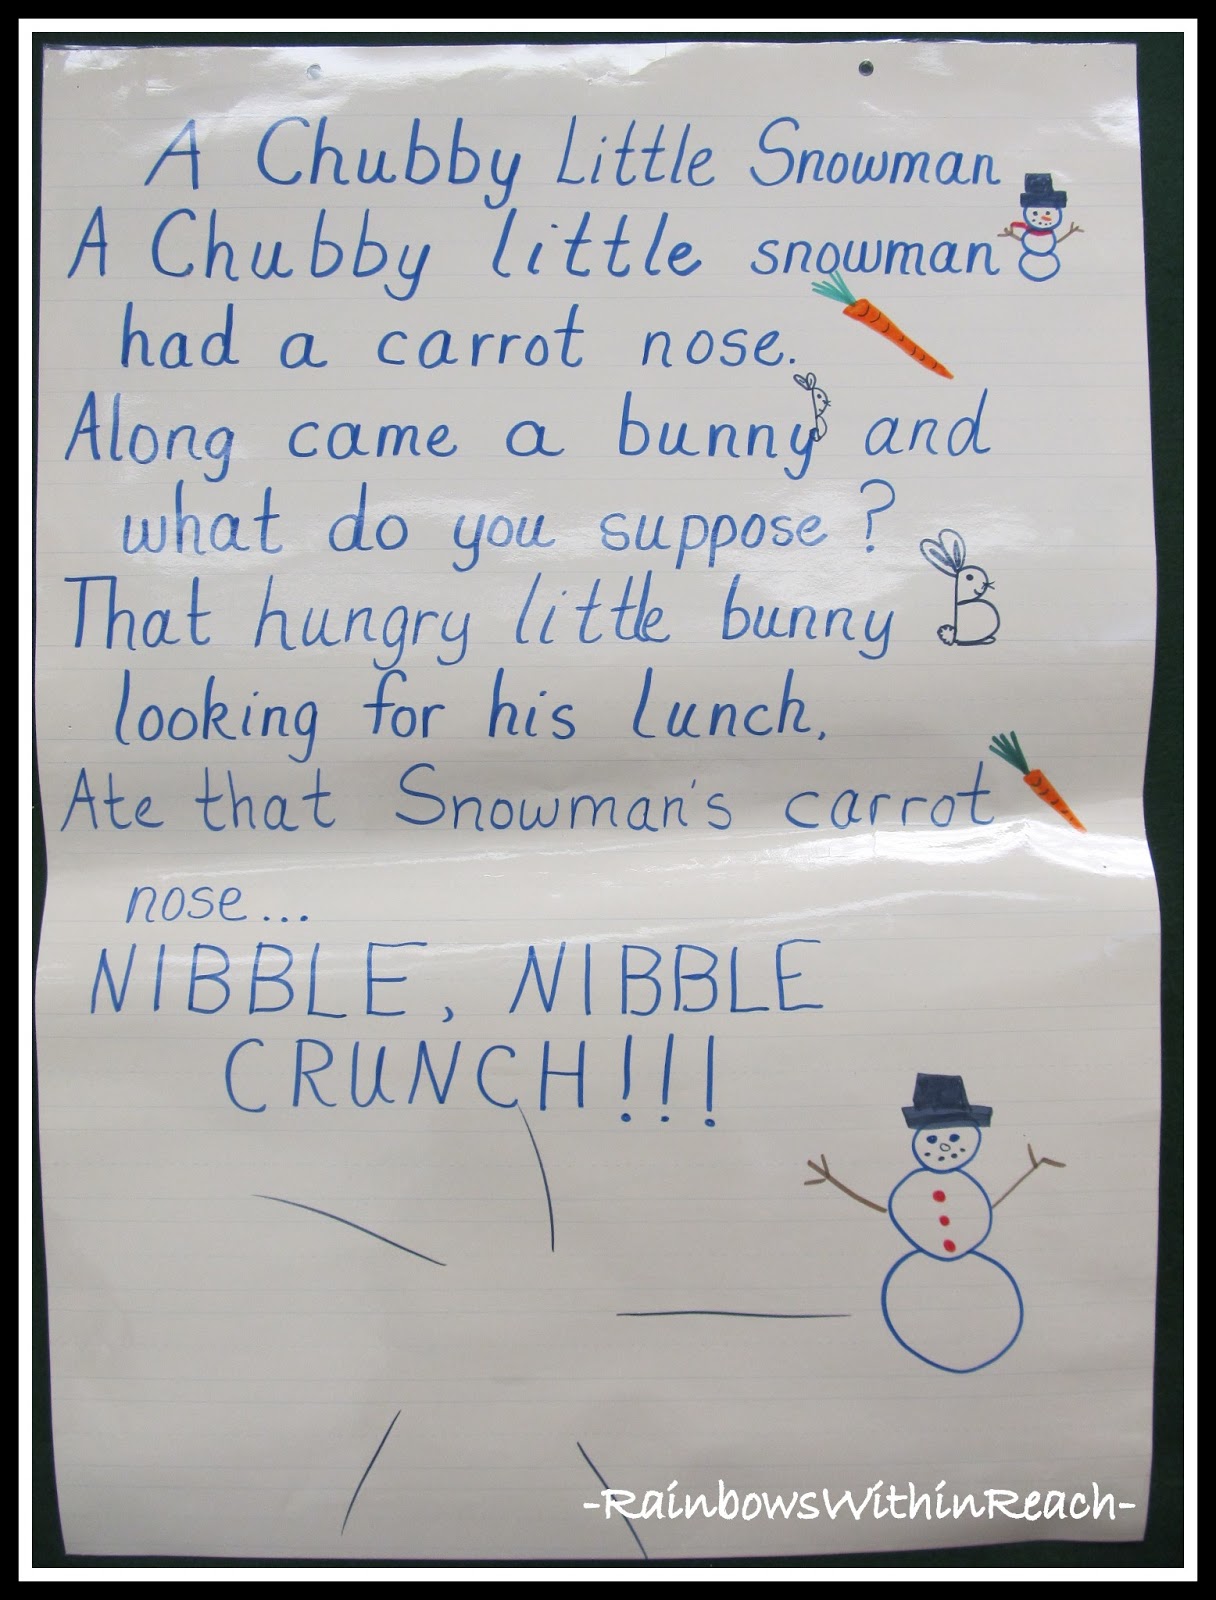 A Chubby Little Snowman
A Chubby little snowman
had a carrot nose.
Along came a bunny and
what do you suppose?
That hungry little bunny
looking for his lunch,
Ate that Snowman's carrot
nose...
NIBBLE, NIBBLE
CRUNCH!!!
-RainbowsWithinReach-